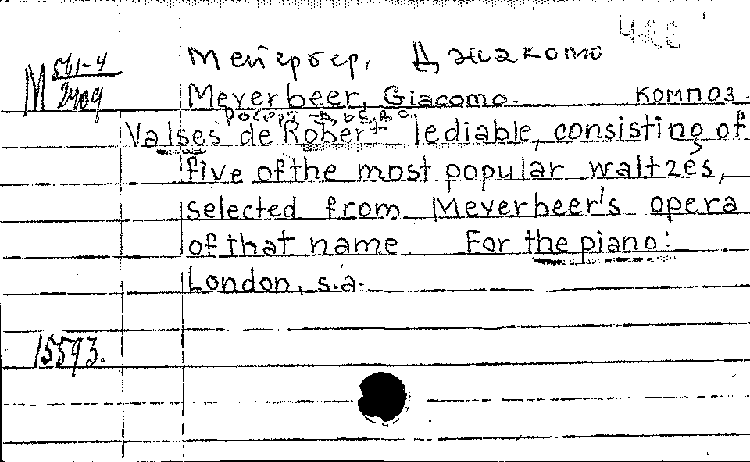 Мейербер, Джакомо
М 561-4/2409
Meyerbeer, Giacomo. композ.
Valses de Robert le diable, consisting of
five of the most popular waltzes,
selected from Meyerbeer's opera
of that name For the piano.
London, s.a.
15593.